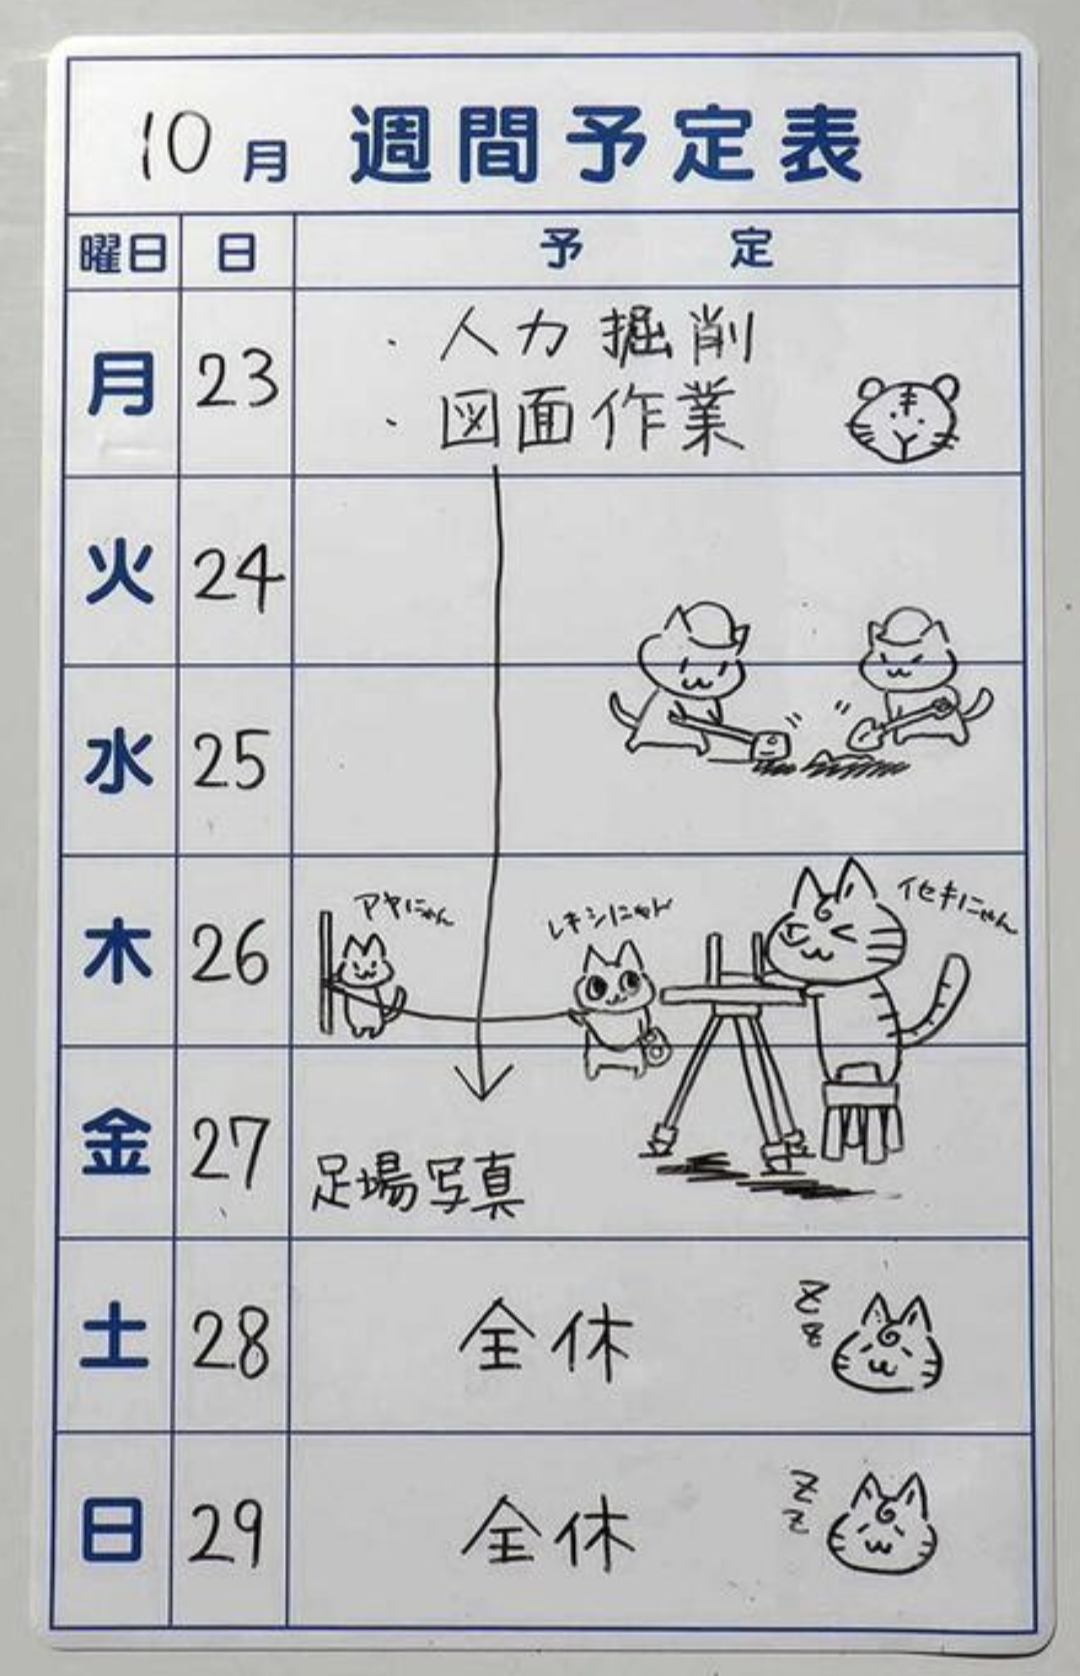 10月 週間予定表
曜日 日 予定
月 23 ・人力掘削
・図面作業
火 24
水 25
木 26 アヤにゃん レキシにゃん イセキにゃん
金 27 足場写真
土 28 全休 zz
日 29 全休 zz